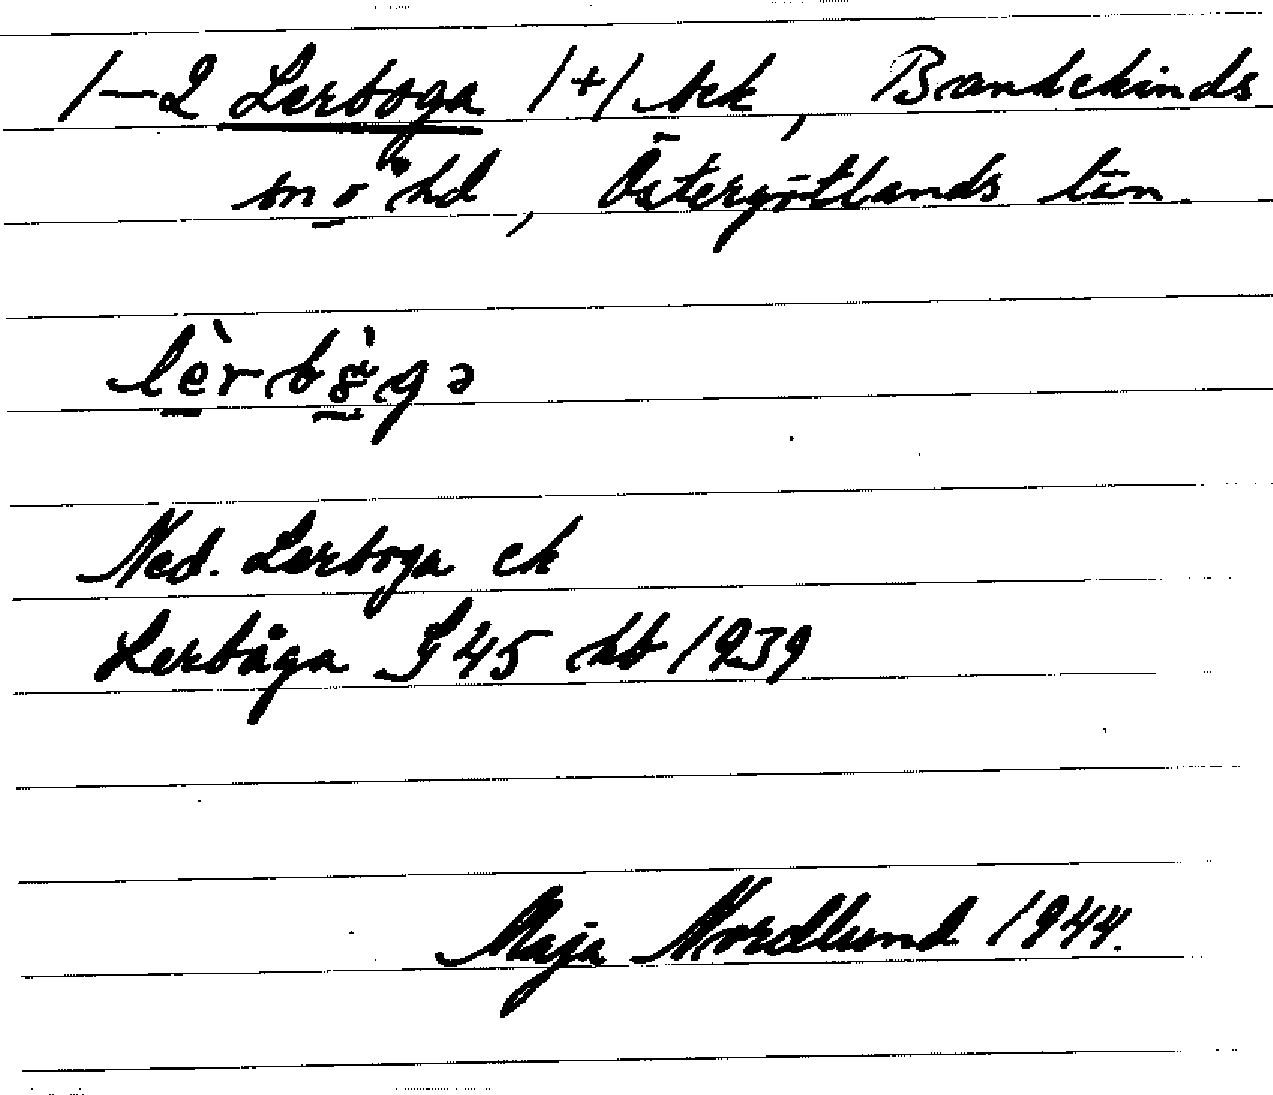 1–2 Lerboga /+/ bck, Brandekinds
sn o hd, Östergötlands län
lèrbògə
Ned. Lerboga ek
Lerbåga J 45 hb 1939
Maja Nordlund 1944.